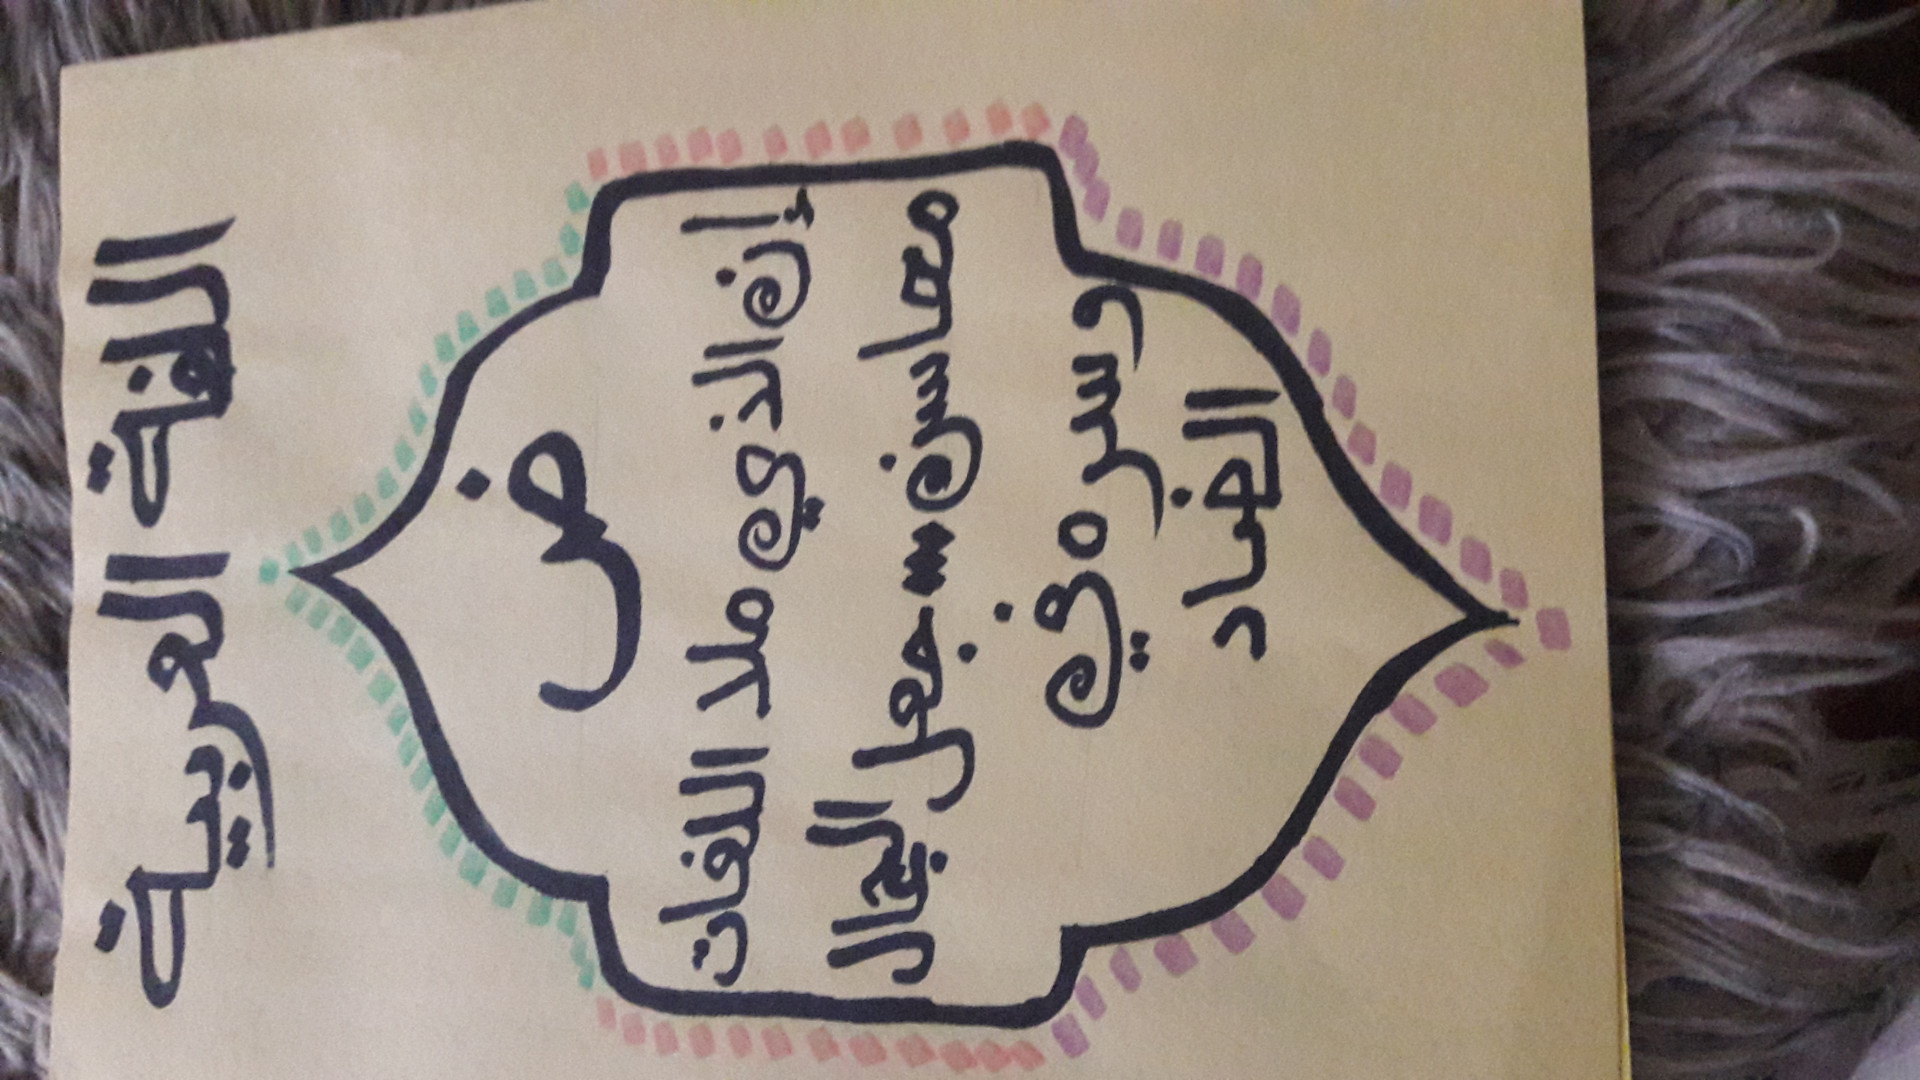 اللغة العربية
ض
إن الذي ملا اللغات
محاسن جعل الجمال
وسره في
الضاد